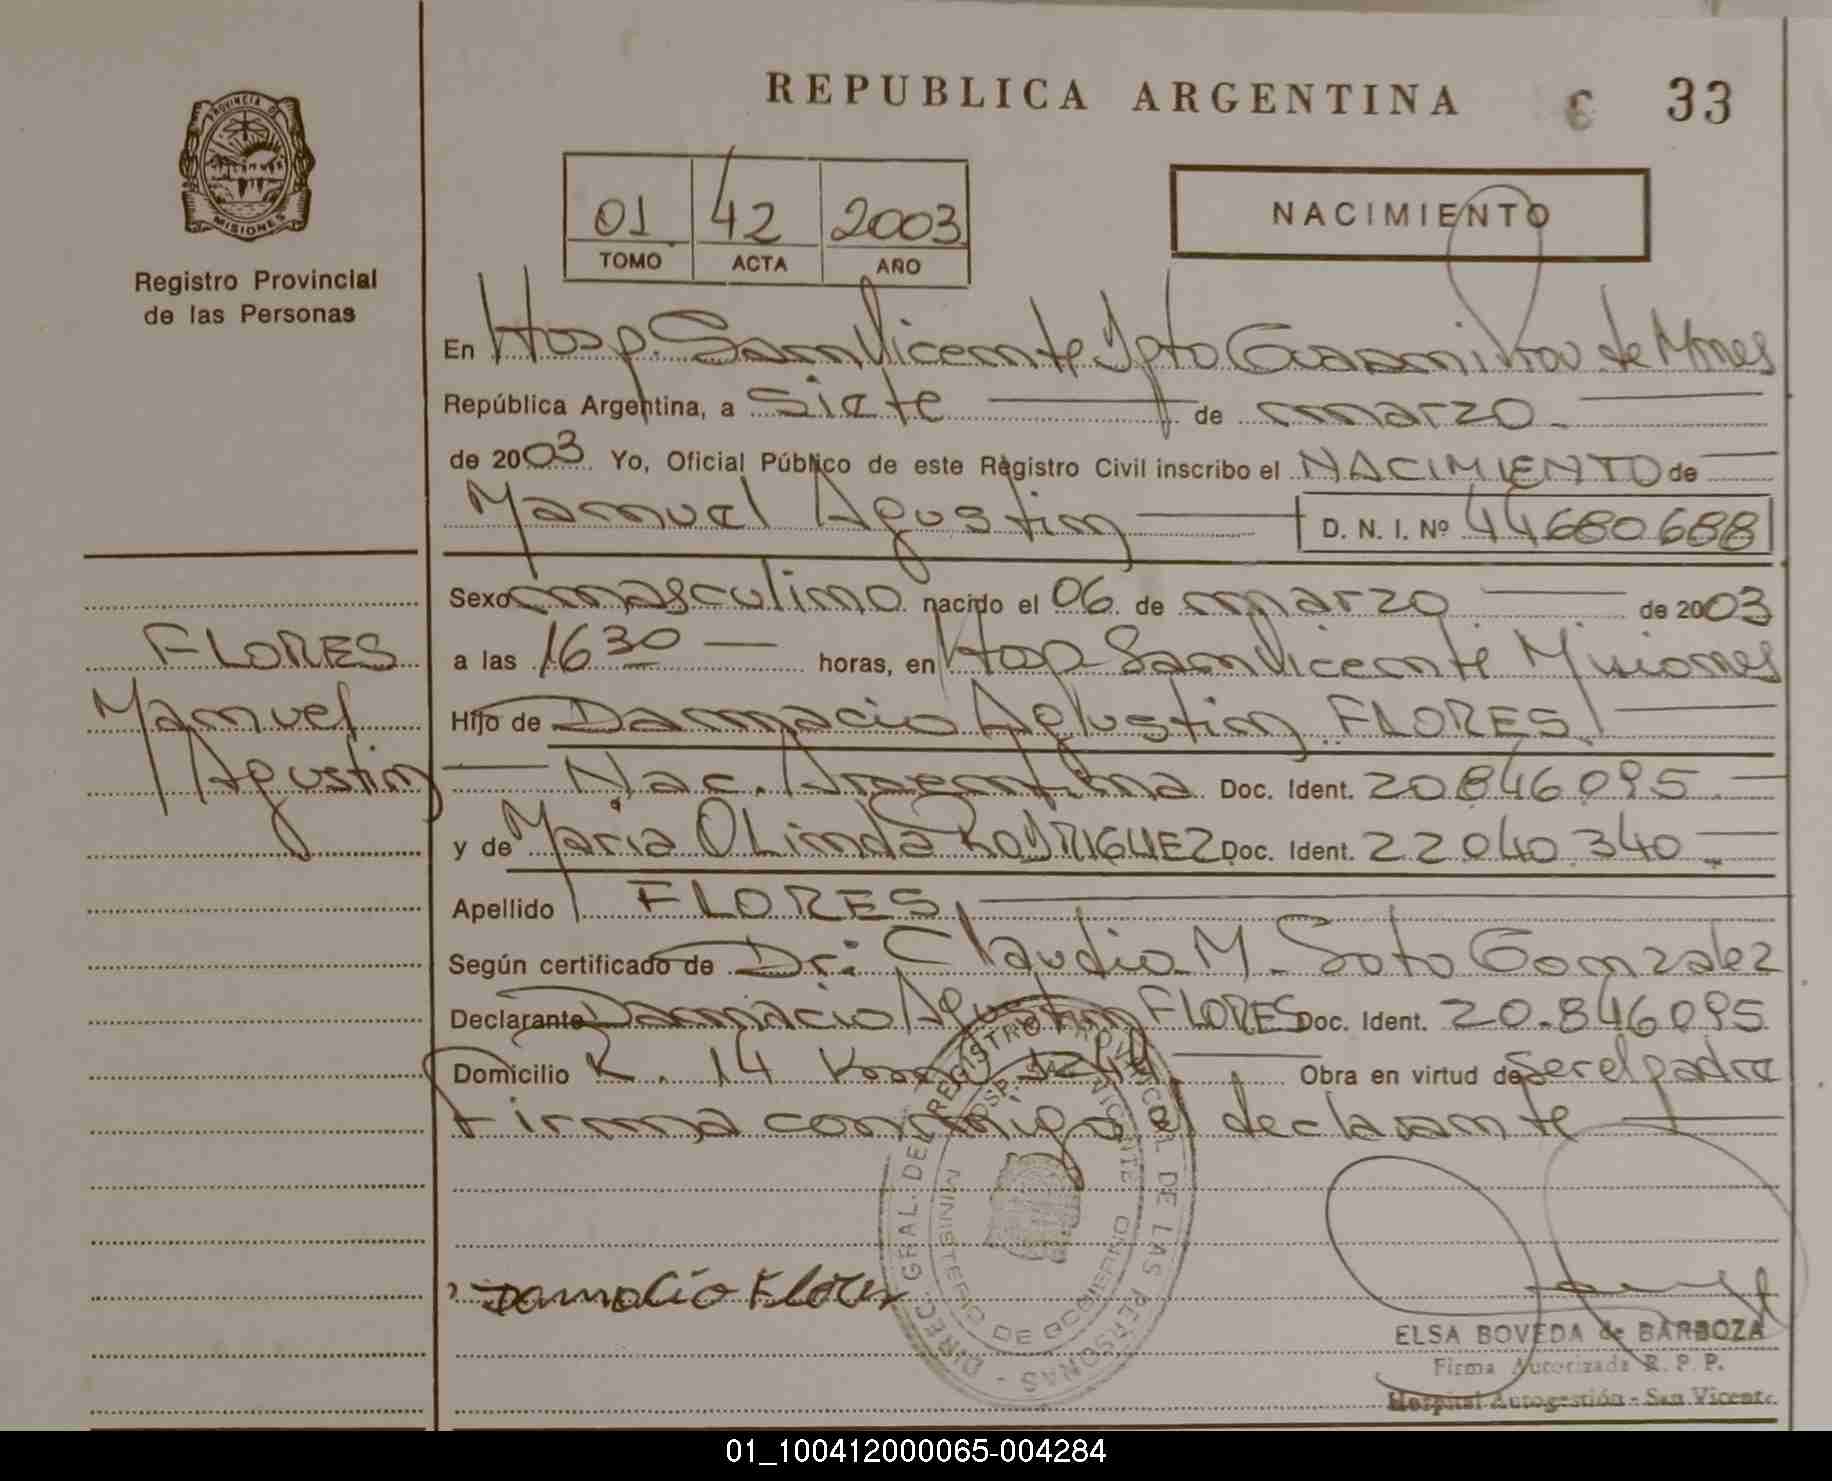 REPUBLICA ARGENTINA 33
PROVINCIA DE
MISIONES
Registro Provincial
de las Personas
01 42 2003
TOMO ACTA AÑO
NACIMIENTO
En Hosp. San Vicente Dpto Guarani Prov. de Mnes
República Argentina, a siete de marzo
de 2003 Yo, Oficial Público de este Registro Civil inscribo el NACIMIENTO de
Manuel Agustin D. N. I. Nº 44680688
Sexo masculino nacido el 06 de marzo de 2003
a las 16 30 horas, en Hosp San Vicente Misiones
Hijo de Damacio Agustin FLORES
Nac. Argentina Doc. Ident. 20846095
y de Maria OLinda RODRIGUEZ Doc. Ident. 22040340
Apellido FLORES
Según certificado de Dr: Claudio M. Soto Gonzalez
Declarante Damacio Agustin FLORES Doc. Ident. 20.846095
Domicilio R. 14 Km 1244 Obra en virtud de ser el padre
Firma conmigo el declarante
FLORES
Manuel
Agustin
Damacio Flores
DIREC. GRAL. DEL REGISTRO PROVINCIAL DE LAS PERSONAS
HOSP. SAN VICENTE
MINISTERIO DE GOBIERNO
ELSA BOVEDA de BARBOZA
Firma Autorizada R. P. P.
Hospital Autogestión - San Vicente
01_100412000065-004284